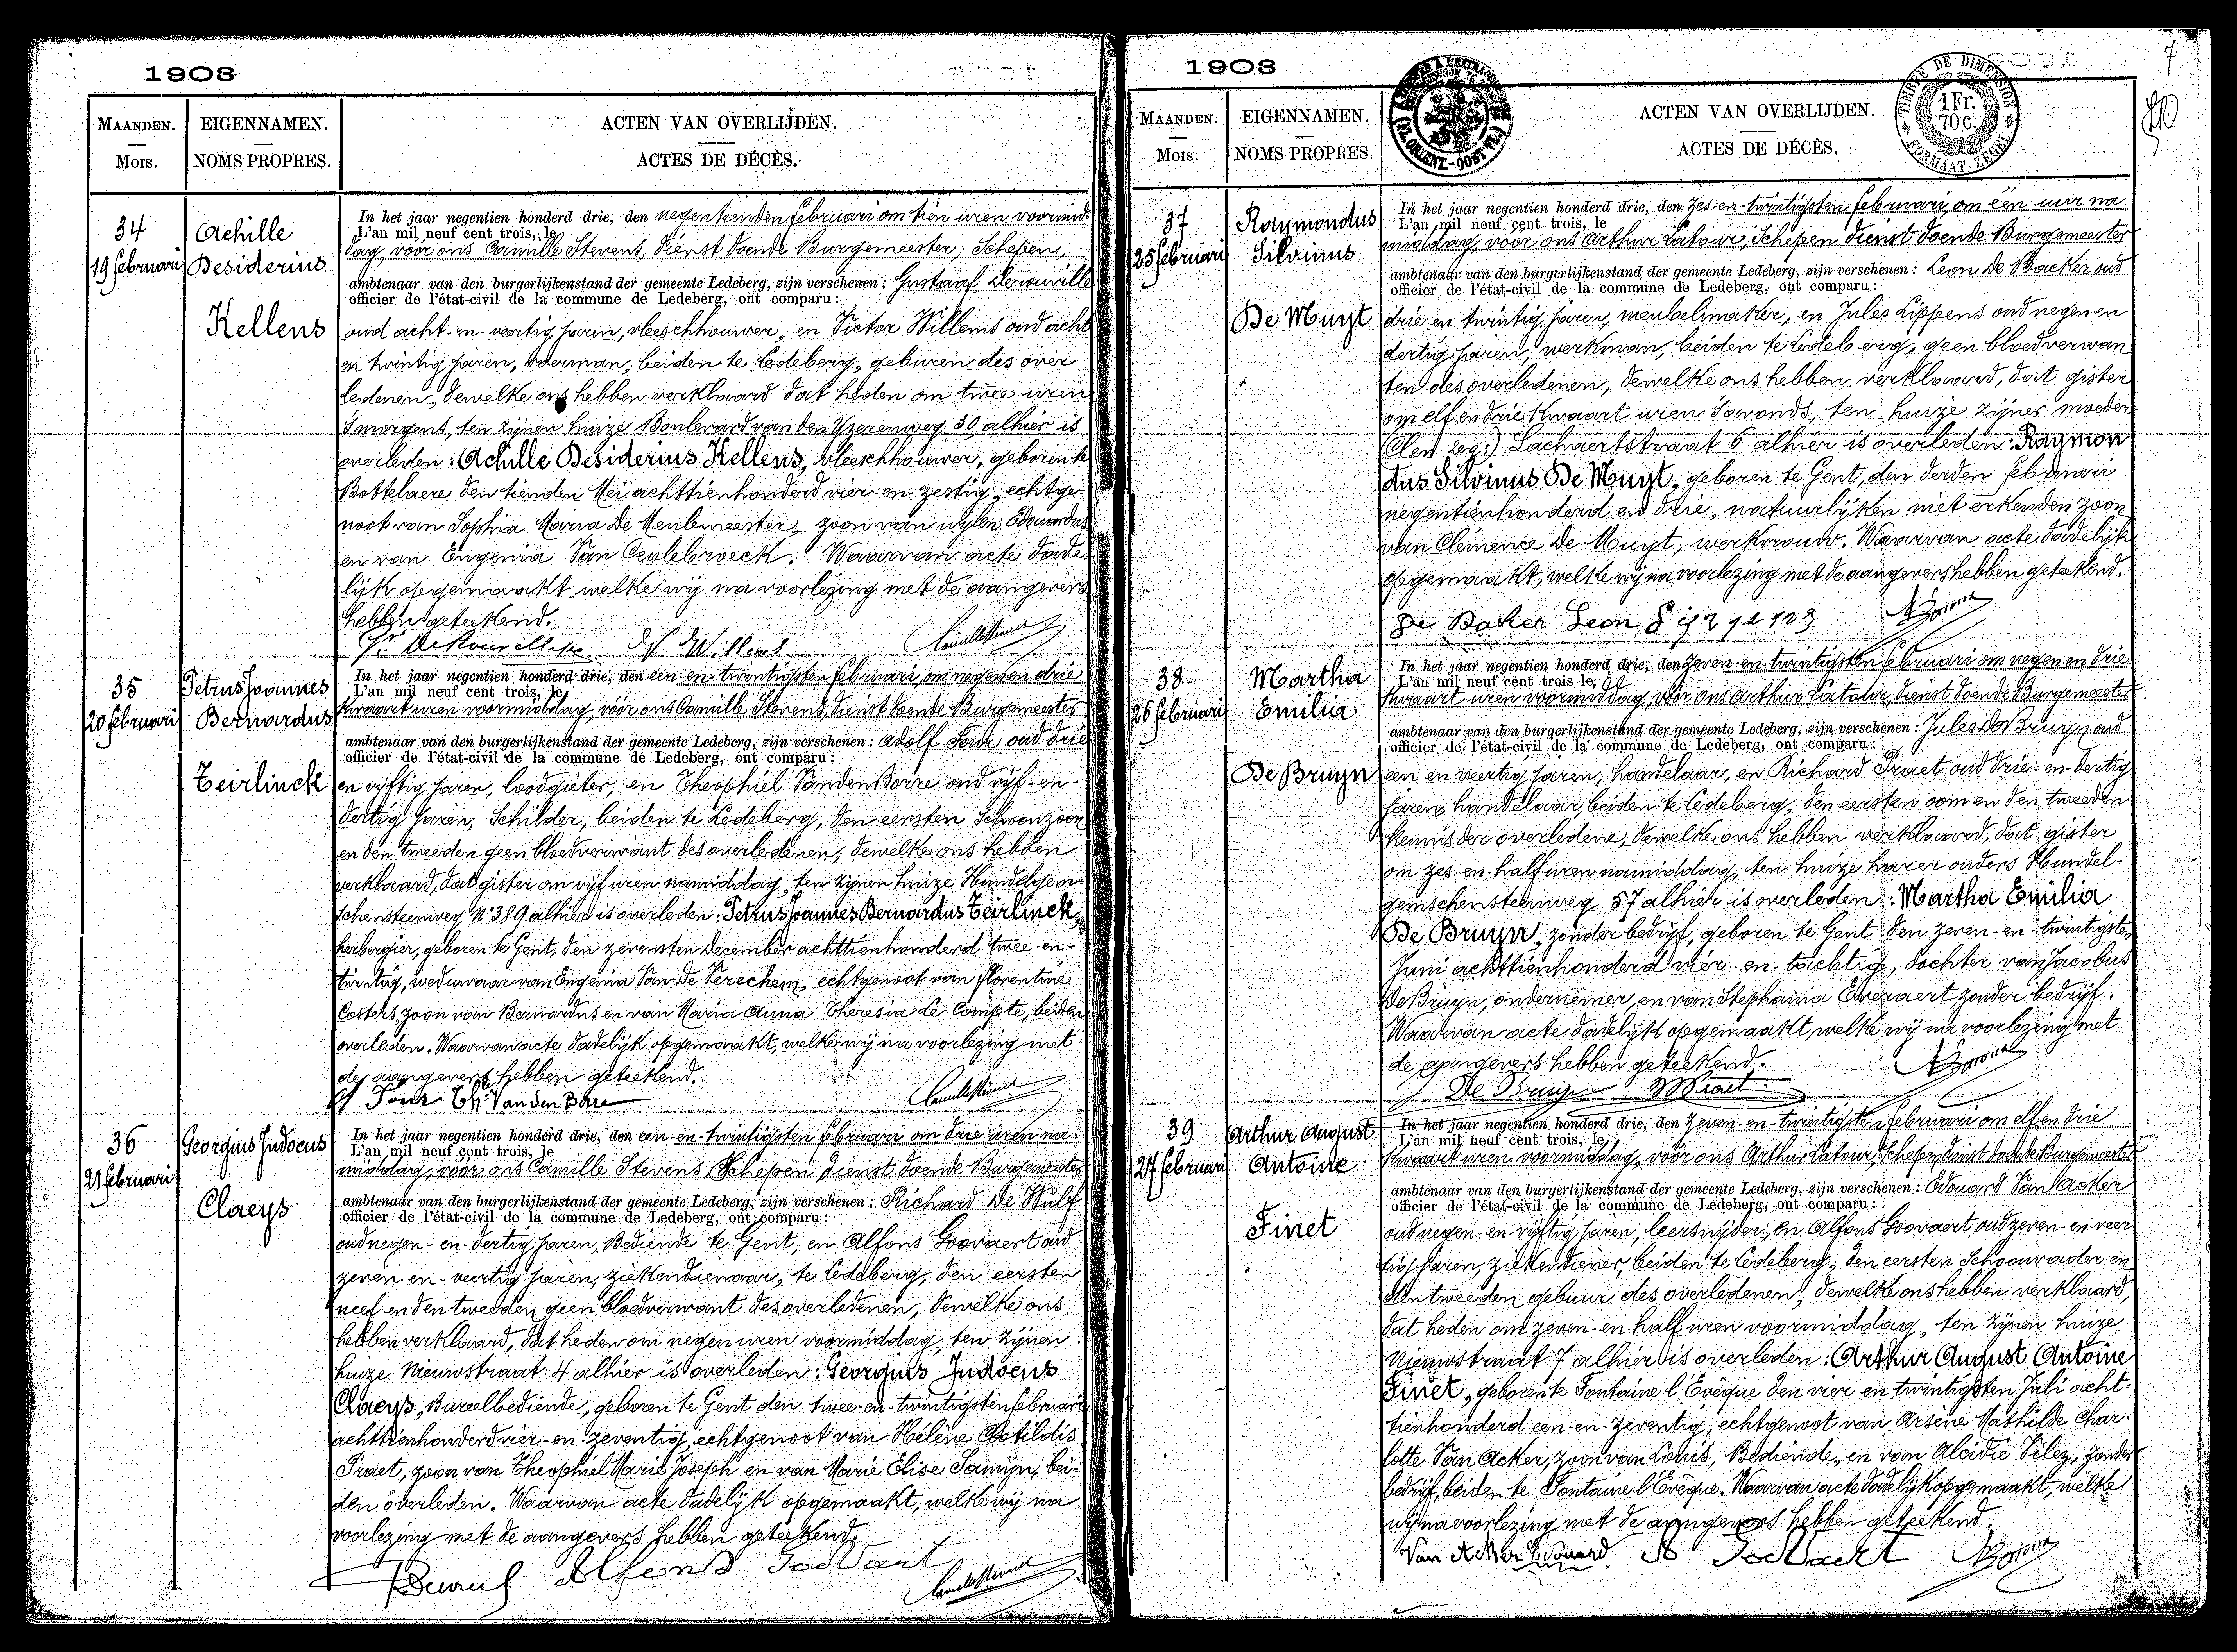 1903
MAANDEN.
MOIS.
EIGENNAMEN.
NOMS PROPRES.
ACTEN VAN OVERLIJDEN.
ACTES DE DÉCÈS.
34
19 februari
Achille
Desiderius
Kellens
In het jaar negentien honderd drie, den negentienden februari om tien uren voormid-
L'an mil neuf cent trois, le
dag, voor ons Camille Stevens, dienst doende Burgemeester, Schepen,
ambtenaar van den burgerlijkenstand der gemeente Ledeberg, zijn verschenen : Gustaaf Derouville
officier de l'état-civil de la commune de Ledeberg, ont comparu :
oud acht-en-veertig jaren, vleeschhouwer, en Victor Willems oud acht
en twintig jaren, voerman, beiden te Ledeberg, geburen des over
ledenen, dewelke ons hebben verklaard dat heden om twee uren
's morgens, ten zijnen huize Boulevard van den Yzerenweg 30 alhier is
overleden : Achille Desiderius Kellens, vleeschhouwer, geboren te
Bottelaere den tienden Mei achttienhonderd vier-en-zestig, echtge-
noot van Sophia Maria De Meulemeester, zoon van wijlen Edouardus
en van Eugenia Van Ceulebroeck. Waarvan acte dade
lijk opgemaakt welke wij na voorlezing met de aangevers
hebben geteekend.
35
20 februari
Petrus Joannes
Bernardus
Teirlinck
In het jaar negentien honderd drie, den een-en-twintigsten februari, om negen en drie
L'an mil neuf cent trois, le
kwaart uren voormiddag, vóór ons Camille Stevens, dienst doende Burgemeester
ambtenaar van den burgerlijkenstand der gemeente Ledeberg, zijn verschenen : Adolf Four oud drie
officier de l'état-civil de la commune de Ledeberg, ont comparu :
en vijftig jaren, loodgieter, en Theophiel Vanden Borre oud vijf-en-
dertig jaren, Schilder, beiden te Ledeberg, den eersten Schoonzoon
en den tweeden geen bloedverwant des overledenen, dewelke ons hebben
verklaard, dat gister om vijf uren namiddag, ten zijnen huize Hundelgem-
schensteenweg N° 389 alhier is overleden : Petrus Joannes Bernardus Teirlinck,
herbergier, geboren te Gent, den zevensten December achttienhonderd twee-en-
twintig, weduwaar van Eugenia Van De Verechem, echtgenoot van Florentine
Costers, zoon van Bernardus en van Maria Anna Theresia Le Compte, beiden
overleden. Waarvan acte dadelijk opgemaakt, welke wij na voorlezing met
de aangevers hebben geteekend.
A Four Th. Van den Borre
36
21 februari
Georgius Judocus
Claeys
In het jaar negentien honderd drie, den een-en-twintigsten februari om drie uren na-
L'an mil neuf cent trois, le
middag, vóór ons Camille Stevens, Schepen dienst doende Burgemeester
ambtenaar van den burgerlijkenstand der gemeente Ledeberg, zijn verschenen : Richard De Wulf
officier de l'état-civil de la commune de Ledeberg, ont comparu :
oud negen-en-dertig jaren, Bediende te Gent, en Alfons Goovaert oud
zeven-en-veertig jaren, ziekendienaar, te Ledeberg, den eersten
neef en den tweeden geen bloedverwant des overledenen, dewelke ons
hebben verklaard, dat heden om negen uren voormiddag, ten zijnen
huize Nieuwstraat 4 alhier is overleden : Georgius Judocus
Claeys, Bureelbediende, geboren te Gent den twee-en-twintigsten februari
achttienhonderd vier-en-zeventig, echtgenoot van Hélène Clotildis
Praet, zoon van Theophiel Marie Joseph en van Marie Elise Samijn, bei-
den overleden. Waarvan acte dadelijk opgemaakt, welke wij na
voorlezing met de aangevers hebben geteekend.
Alfons Goovaert
1903
7
MAANDEN.
MOIS.
EIGENNAMEN.
NOMS PROPRES.
ACTEN VAN OVERLIJDEN.
ACTES DE DÉCÈS.
TIMBRE DE DIMENSION
1 Fr.
70 c.
FORMAAT ZEGEL
37
25 februari
Raymondus
Silvinus
De Muyt
In het jaar negentien honderd drie, den zes-en-twintigsten februari, om één uur na
L'an mil neuf cent trois, le
middag, voor ons Arthur Latour, Schepen dienst doende Burgemeester
ambtenaar van den burgerlijkenstand der gemeente Ledeberg, zijn verschenen : Leon De Backer oud
officier de l'état-civil de la commune de Ledeberg, ont comparu :
drie en twintig jaren, meubelmaker, en Jules Lippens oud negen en
dertig jaren, werkman, beiden te Ledeberg, geen bloedverwan
ten des overledenen, dewelke ons hebben verklaard, dat gister
om elf en drie kwaart uren s'avonds, ten huize zijner moeder
Lachaertstraat 6 alhier is overleden : Raymon
dus Silvinus De Muyt, geboren te Gent, den derden februari
negentienhonderd en drie, natuurlijken niet erkenden zoon
van Clémence De Muyt, werkvrouw. Waarvan acte dadelijk
opgemaakt, welke wij na voorlezing met de aangevers hebben geteekend.
De Baker Leon
38
26 februari
Martha
Emilia
De Bruyn
In het jaar negentien honderd drie, den zeven-en-twintigsten februari om negen en drie
L'an mil neuf cent trois, le
kwaart uren voormiddag, vóór ons Arthur Latour, dienst doende Burgemeester
ambtenaar van den burgerlijkenstand der gemeente Ledeberg, zijn verschenen : Jules De Bruyn oud
officier de l'état-civil de la commune de Ledeberg, ont comparu :
een en veertig jaren, handelaar, en Richard Praet oud drie-en-dertig
jaren, handelaar, beiden te Ledeberg, den eersten oom en den tweeden
kennis der overledene, dewelke ons hebben verklaard, dat gister
om zes-en-half uren namiddag, ten huize harer ouders Hundel-
gemschensteenweg 57 alhier is overleden : Martha Emilia
De Bruyn, zonder bedrijf, geboren te Gent den zeven-en-twintigsten
Juni achttienhonderd vier-en-tachtig, dochter van Jacobus
De Bruyn, ondernemer, en van Stephania Everaert zonder bedrijf.
Waarvan acte dadelijk opgemaakt, welke wij na voorlezing met
de aangevers hebben geteekend.
De Bruyn
39
27 februari
Arthur August
Antoine
Finet
In het jaar negentien honderd drie, den zeven-en-twintigsten februari om elf en drie
L'an mil neuf cent trois, le
kwaart uren voormiddag, vóór ons Arthur Latour, Schepen dienst doende Burgemeester
ambtenaar van den burgerlijkenstand der gemeente Ledeberg, zijn verschenen : Edouard Van Acker
officier de l'état-civil de la commune de Ledeberg, ont comparu :
oud negen-en-vijftig jaren, leersnijder, en Alfons Goovaert oud zeven-en-veer
tig jaren, ziekendiener, beiden te Ledeberg, den eersten Schoonvader en
den tweeden gebuur des overledenen, dewelke ons hebben verklaard,
dat heden om zeven-en-half uren voormiddag, ten zijnen huize
Nieuwstraat 7 alhier is overleden : Arthur August Antoine
Finet, geboren te Fontaine l'Evêque den vier en twintigsten Juli acht-
tienhonderd een-en-zeventig, echtgenoot van Arsène Mathilde Char-
lotte Van Acker, zoon van Louis, Bediende, en van Alcidie Vilez, zonder
bedrijf, beiden te Fontaine l'Evêque. Waarvan acte dadelijk opgemaakt, welke
wij na voorlezing met de aangevers hebben geteekend.
Van Acker Edouard. A Goovaert